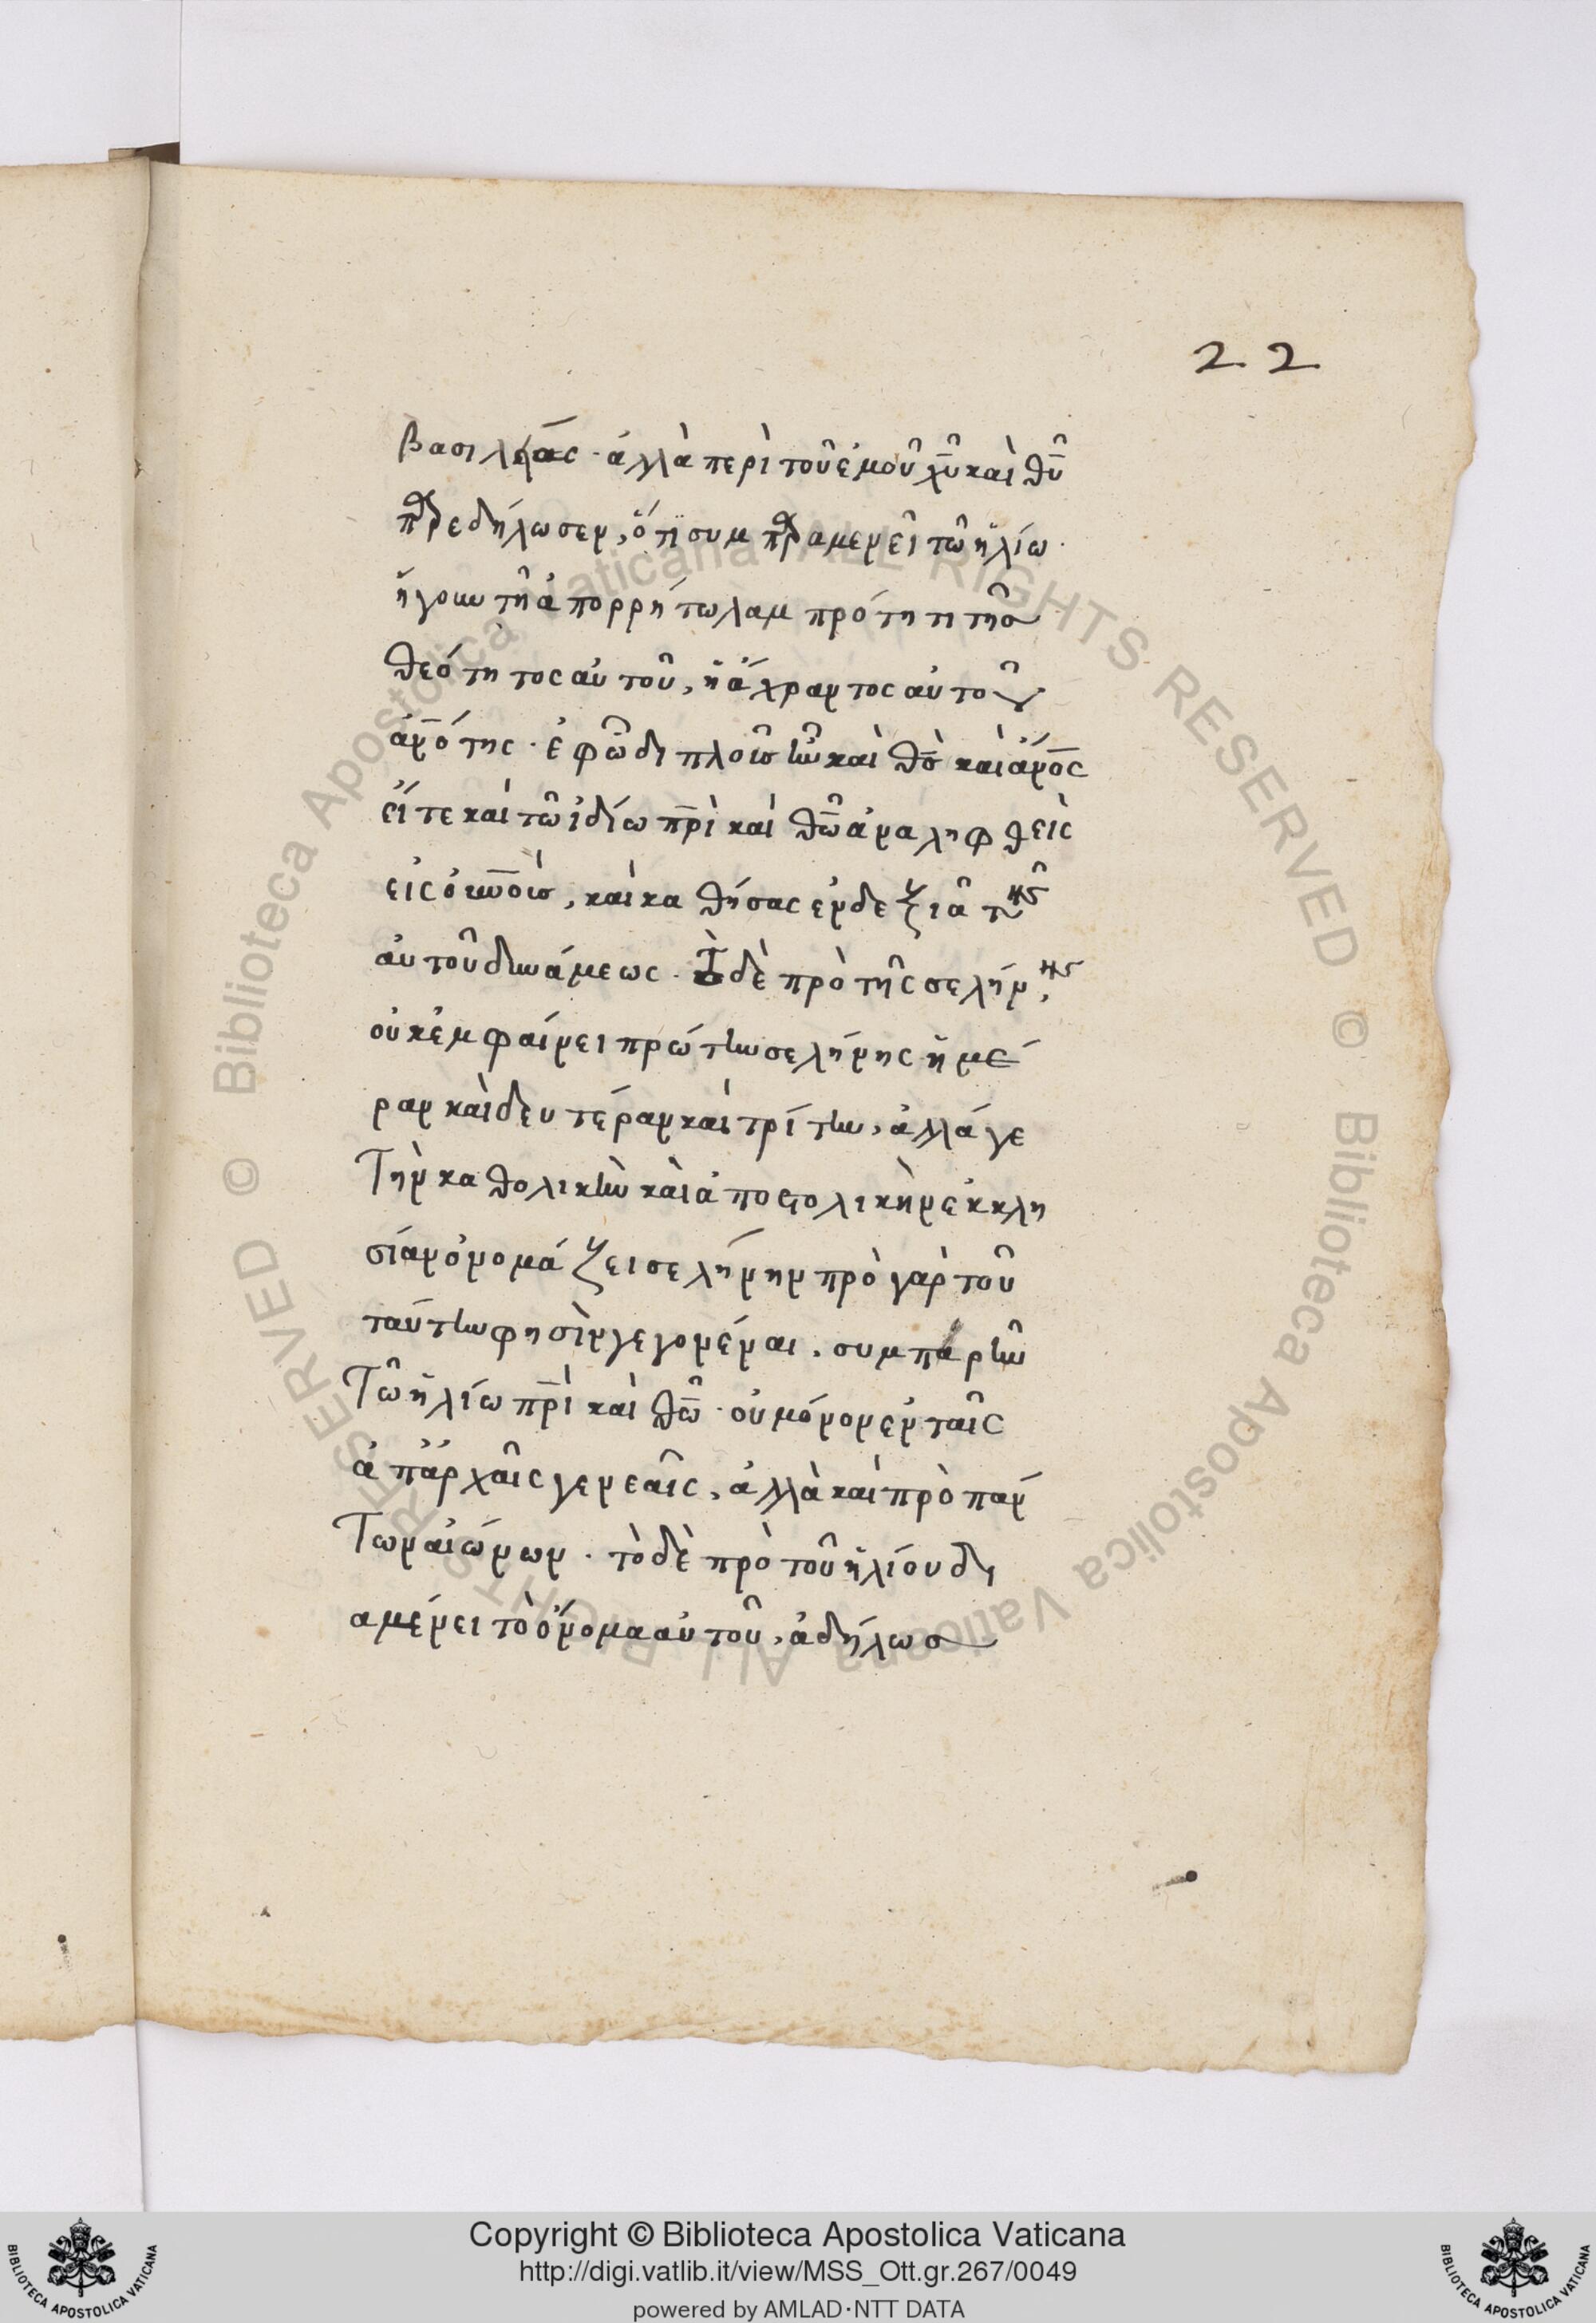 22
βασιλείας · ἀλλὰ περὶ τοῦ ἐμοῦ χυ̅ καὶ θυ̅
παρεδήλωσεν, ὅτι συμπαραμενεῖ τῶ ἡλίω ·
ἤγουν τῆ ἀπορρήτω λαμπρότητι τῆσ
θεότητος αὐτοῦ, ἡ ἄχραντος αὐτοῦ
ἀν̅ότης · ἐφῶ διπλοῦσ ἦν καὶ θσ̅ καὶ ἄν̅ος
εἴτε καὶ τῶ ἰδίω πρ̅ὶ καὶ θω̅ ἀναληφθεὶς
εἰς οὐν̅οὺσ, καὶ καθήσας ἐν δεξιᾶ τῆς
αὐτοῦ δυνάμεως · τὸ δὲ πρὸ τῆς σελήνης,
οὐκ ἐμφαίνει πρώτην σελήνης ἡμέ
ραν καὶ δευτέραν καὶ τρίτην, ἀλλά γε
Τὴν καθολικὴν καὶ ἀποστολικὴν ἐκκλη
σίαν ὀνομάζει σελήνην πρὸ γὰρ τοῦ
ταύτην φησὶν γεγονέναι, συμπαρῆν
Τῶ ἡλίω πρ̅ὶ καὶ θω̅ · οὐ μόνον ἐν ταῖς
ἀπἀρχαῖς γενεαῖς, ἀλλὰ καὶ πρὸ πάν
Των αἰώνων · τὸ δὲ πρὸ τοῦ ἡλίου δι
αμένει τὸ ὄνομα αὐτοῦ, ἀδήλωσ
Copyright © Biblioteca Apostolica Vaticana
http://digi.vatlib.it/view/MSS_Ott.gr.267/0049
powered by AMLAD·NTT DATA
BIBLIOTECA APOSTOLICA VATICANA
BIBLIOTECA APOSTOLICA VATICANA
© Biblioteca Apostolica Vaticana ALL RIGHTS RESERVED © Biblioteca Apostolica Vaticana ALL RIGHTS RESERVED